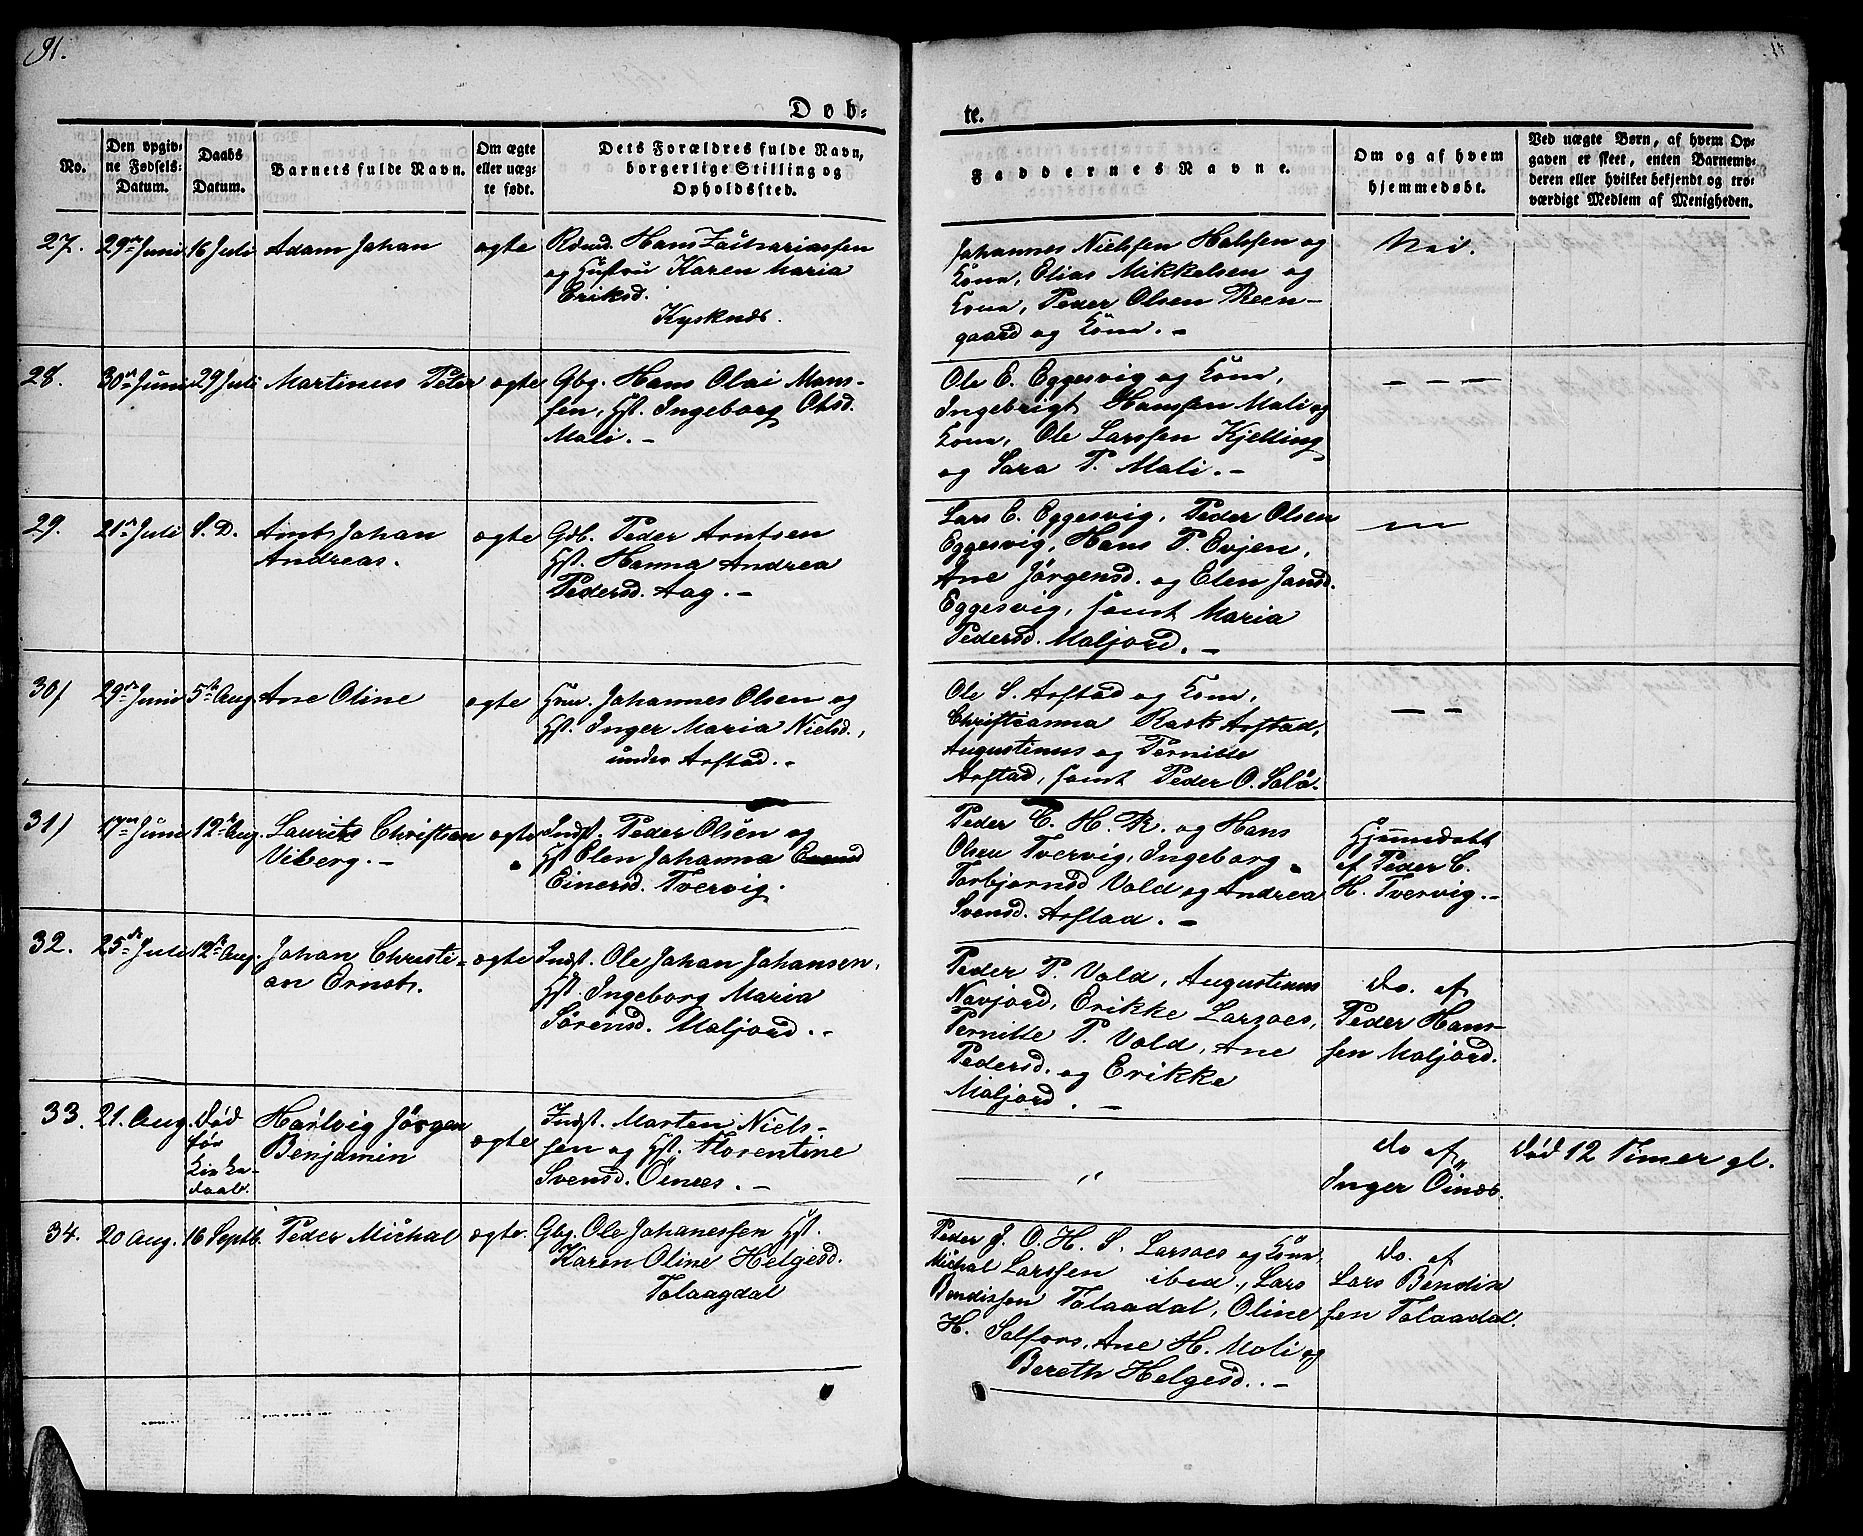 91.
Døb-
te.
No.
Den opgiv-
ne Fødsels-
Datum.
Daabs
Datum.
Barnets fulde Navn.
Om ægte
eller uæg-
te født.
Dets Forældres fulde Navn,
borgerlige Stilling og
Opholdssted.
Faddernes Navne.
Om og af hvem
hjemmedøbt.
Ved uægte Børn, af hvem Op-
gaven er skeet, enten Barnemo-
deren eller hvilket bekjendt og tro-
værdigt Medlem af Menigheden.
27.
29de Juni
16 Juli
Adam Johan
ægte
Rdmd. Hans Zachariassen
og Hustru Karen Maria
Eriksd.
Kysknds.
Johannes Nielsen Halsen og
Kone, Elias Mikkelsen og
Kone, Peder Olsen Reen-
gaard og Kone. -
Nei.
28.
30te Juni
29 Juli
Martinus Peter
ægte
Gbg. Hans Olai Mons-
sen, Hst. Ingeborg Olsd.
Mali. -
Ole E. Eggesvig og Kone,
Ingebrigt Hanssen Mali og
Kone, Ole Larssen Kjelling
og Sara P. Mali. -
— — —
29.
21de Juli
S. D.
Arnt Johan
Andreas.
ægte
Gdb. Peder Arntsen
Hst. Hanna Andrea
Pedersd. Aag. -
Lars E. Eggesvig, Peder Olsen
Eggesvig, Hans P. Evjen,
Ane Jörgensd. og Elen Jansd.
Eggesvig, samt Maria
Pedersd. Maljord. -
— —
30/
29de Juni
5te Aug.
Ane Oline
ægte
Hmd. Johannes Olsen og
Hst. Inger Maria Nielsd.,
under Arstad. -
Ole S. Arstad og Kone,
Christianna Rask Arstad,
Augustinus og Pernille
Arstad, samt Peder O. Salö.
— — —
31)
17de June
12te Aug.
Laurits Christian
Viberg. -
ægte
Indst. Peder Olsen og
Hst Elen Johanna
Einersd. Tvervig.
Peder C. H. R. og Hans
Olsen Tvervig, Ingeborg
Torbjornsd Vold og Andrea
Svensd. Arstad. -
Hjemmedøbt
af Peder C.
H. Tvervig. -
32.
25de Juli
12te Aug.
Johan Christi-
an Ernst.
ægte
Indst. Ole Johan Johansen,
Hst. Ingeborg Maria
Sörensd. Maljord. -
Peder P. Vold, Augustinus
Navjord, Erikke Larsoes,
Pernille P. Vold, Ane
Pedersd. og Erikke
Maljord. -
Do. af
Peder Hans-
sen Maljord.
33.
21. Aug.
Død
før
Kirke-
daab.
Hartvig Jörgen
Benjamin
ægte
Indst. Morten Niels-
sen og Hst. Florentine
Svensd. Öines. -
"
Do af
Inger Öines.
Død 12 Timer gl.
34.
20 Aug.
16 Septb.
Peder Michal
ægte.
Gbg. Ole Johanessen Hst.
Karen Oline Helgesd.
Tolaagdal
Peder J. O. H. S. Larsoes og Kone,
Michal Larssen ibid., Lars
Bendixsen Tolaadal, Oline
H. Salfors, Ane H. Mali og
Bereth Helgesd. -
Do. af
Lars Bendix
sen Tolaadal.